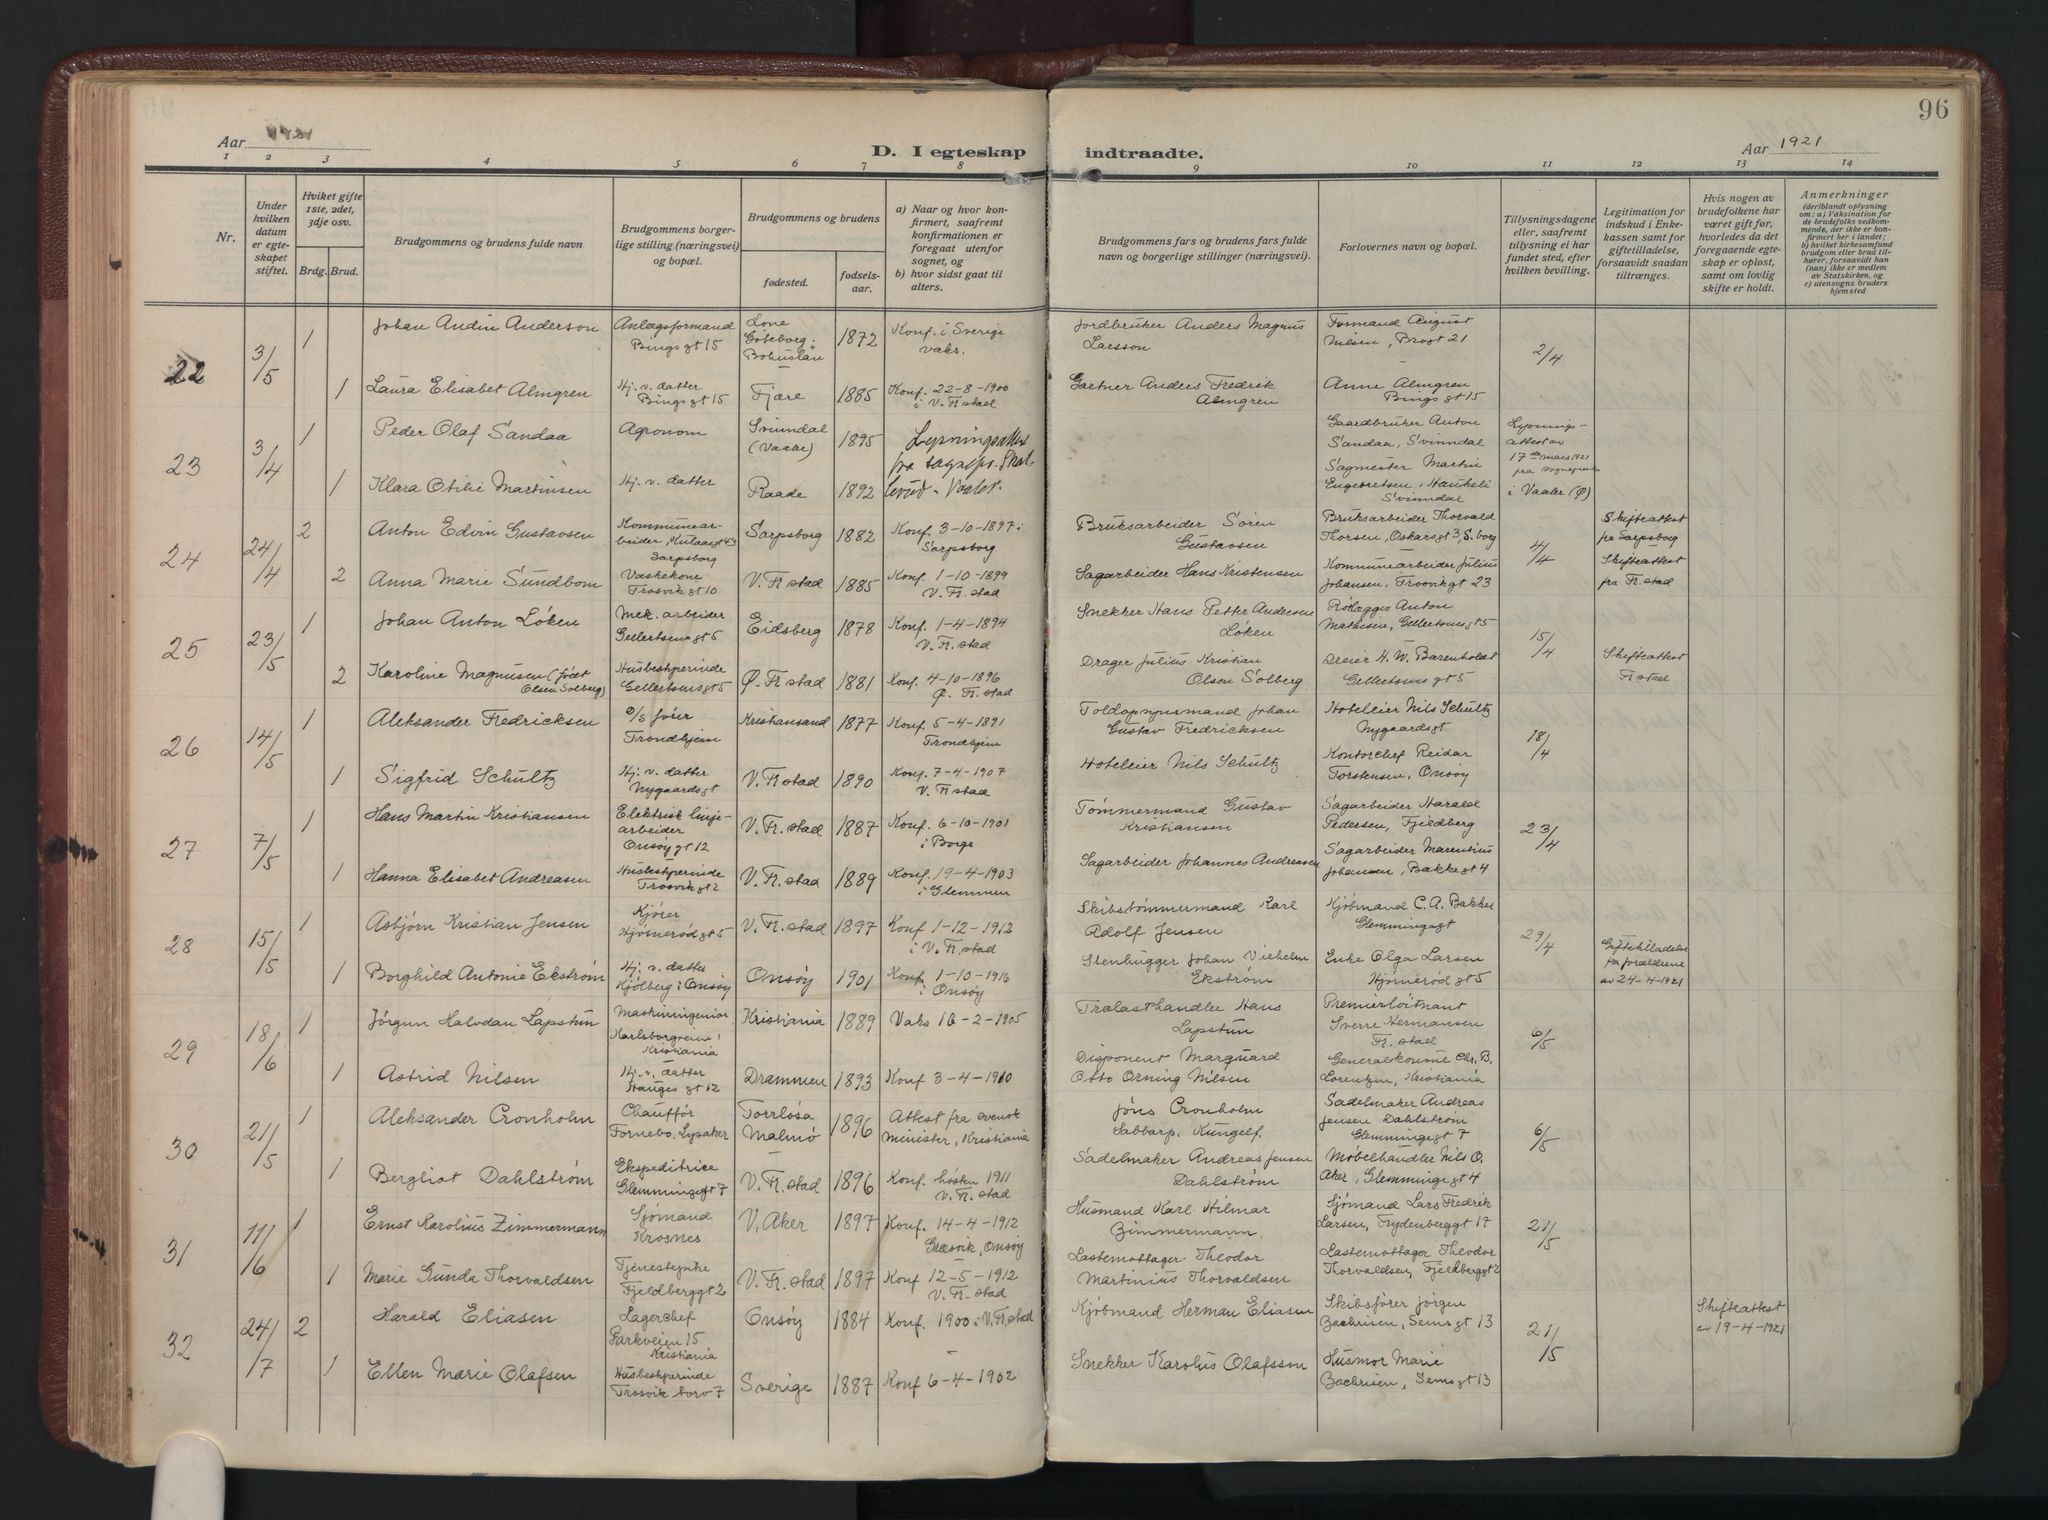 96
Aar 1921
D. I egteskap indtraadte.
Aar 1921
1 2 3 4 5 6 7 8 9 10 11 12 13 14
Nr.
Under hvilken datum er egteskapet stiftet.
Hviket gifte 1ste, 2det, 3dje osv.
Brdg. Brud.
Brudgommens og brudens fulde navn
Brudgommens borgerlige stilling (næringsvei) og bopæl.
Brudgommens og brudens
fødested.
fødselsaar.
a) Naar og hvor konfirmert, saafremt konfirmationen er foregaat utenfor sognet, og
b) hvor sidst gaat til alters.
Brudgommens fars og brudens fars fulde navn og borgerlige stillinger (næringsvei).
Forlovernes navn og bopæl.
Tillysningsdagene eller, saafremt tillysning ei har fundet sted, efter hvilken bevilling.
Legitimation for indskud i Enkekassen samt for giftetilladelse, forsaavidt saadan tiltrænges.
Hvis nogen av brudefolkene har været gift før, hvorledes da det foregaaende egteskap er opløst, samt om lovlig skifte er holdt.
Anmerkninger
(deriblandt oplysning om: a) Vaksination for de brudefolks vedkommende, der ikke er konfirmert her i landet; b) hvilket kirkesamfund brudgom eller brud tilhører, forsaavidt han (hun) ikke er medlem av Statskirken, og c) utensogns bruders hjemsted.
22 3/5 1 Johan Andin Anderson Anlægsformand Bingsgt 15 Lone Göteborg & Bohuslän 1872 Konf. i Sverige vaks. Jordbruker Anders Magnus Larsson Formand August Nilsen, Brogt 21 2/4
1 Laura Elisabet Almgren Hj. v. datter Bingsgt 15 Fjære 1885 Konf. 22-8-1900 i V. Fr.stad Gartner Anders Fredrik Almgren Anne Almgren Bingsgt 15
23 3/4 1 Peder Olaf Sandaa Agronom Svinndal (Vaaler) 1895 Lysningsattest fra sognepr. Gaardbruker Anton Sandaa, Svinndal Lysningsattest av 17de mars 1921 fra sognepresten i Vaaler (Ø)
1 Klara Otilie Martinsen Hj. v. datter Raade 1892 Sagmester Martin Engebretsen, Haukeli Svinndal
24 24/4 2 Anton Edvin Gustavsen Kommunearbeider, Kulaasgt 43 Sarpsborg Sarpsborg 1882 Konf. 3-10-1897 i Sarpsborg Bruksarbeider Søren Gustavsen Bruksarbeider Thorvald Thorsen, Oskarsgt 3, S.borg 4/4 Skifteattest fra Sarpsborg
2 Anna Marie Sundbom Vaskekone Trosvikgt 10 V. Fr.stad 1885 Konf. 1-10-1899 V. Fr.stad Sagarbeider Hans Kristensen Kommunearbeider Julius Johansen, Trosvikgt 23 Skifteattest fra Fr.stad
25 23/5 1 Johan Anton Løken Mek. arbeider Gellertsensgt 5 Eidsberg 1878 Konf. 1-4-1894 V. Fr.stad Snekker Hans Petter Andresen Løken Rørlægger Anton Mathisen, Gellertsensgt 5 15/4
2 Karoline Magnusen (født Olsen Solberg) Husbestyrerinde Gellertsensgt 5 Ø. Fr.stad 1881 Konf. 4-10-1896 Ø. Fr.stad Drager Julius Kristian Olsen Solberg Dreier H. W. Barenholdt Gellertsensgt 5 Skifteattest Fr.stad
26 14/5 1 Aleksander Fredricksen S/S fører Trondhjem Kristiansand 1877 Konf. 5-4-1891 Trondhjem Toldopsynsmand Johan Gustav Fredricksen Hoteleier Nils Schultz Nygaardsgt 18/4
1 Sigfrid Schultz Hj. v. datter Nygaardsgt V. Fr.stad 1890 Konf. 7-4-1907 V. Fr.stad Hoteleier Nils Schultz Kontorchef Reidar Torstensen, Onsøy
27 7/5 1 Hans Martin Kristiansen Elektrisk linjearbeider Onsøygt 12 V. Fr.stad 1887 Konf. 6-10-1901 i Borge Tømmermand Gustav Kristiansen Sagarbeider Harald Pedersen, Fjeldberg 23/4
1 Hanna Elisabet Andreasen Husbestyrerinde Trosvikgt 2 V. Fr.stad 1889 Konf. 19-4-1903 i Glemmen Sagarbeider Johannes Andreasen Sagarbeider Marentius Johansen, Bakkegt 4
28 15/5 1 Asbjørn Kristian Jensen Kjører Hjørnerødgt 5 V. Fr.stad 1897 Konf 1-12-1912 i V. Fr.stad Skibstømmermand Karl Adolf Jensen Kjøbmand C. A. Bakker Glemmingegt 29/4
1 Borghild Antonie Ekstrøm Hj. v. datter Kjølberg i Onsøy Onsøy 1901 Konf. 1-10-1916 i Onsøy Stenhugger Johan Vilhelm Ekstrøm Enke Olga Larsen Hjørnerødgt 5 Giftetilladelse fra forældrene av 24-4-1921
29 18/6 1 Jørgen Halvdan Lapstun Maskiningeniør Karlsborgveien 1 Kristiania Kristiania 1889 Vaks 16-2-1905 Trælasthandler Hans Lapstun Premierløitnant Sverre Hermansen Fr.stad 6/5
1 Astrid Nilsen Hj. v. datter Haugesgt 12 Drammen 1893 Konf 3-4-1910 Disponent Marquard Otto Orning Nilsen Generalkonsul Chr. B. Lorentzen, Kristiania
30 21/5 1 Aleksander Cronholm Chauffør Fornebo, Lysaker Torrlösa Malmö 1896 Attest fra svensk minister, Kristiania Jöns Cronholm Sabbarp, Kungelf. Sadelmaker Andreas Jensen Dahlstrøm Glemmingegt 7 6/5
1 Bergliot Dahlstrøm Ekspeditrice Glemmingegt 7 V. Fr.stad 1896 Konf. høsten 1911 V. Fr.stad Sadelmaker Andreas Jensen Dahlstrøm Møbelhandler Nils O. Aker, Glemmingegt 4
31 11/6 1 Ernst Karolius Zimmermann Sjømand Krosnes V. Aker 1897 Konf. 14-4-1912 Græsvik, Onsøy Husmand Karl Hilmar Zimmermann Sjømand Lars Fredrik Larsen, Frydenberggt 17 21/5
1 Marie Gunda Thorvaldsen Tjenestepike Fjeldberggt 2 V. Fr.stad 1897 Konf 12-5-1912 V. Fr.stad Lastemottager Theodor Martinius Thorvaldsen Lastemottager Theodor Thorvaldsen, Fjeldberggt 2
32 24/7 2 Harald Eliasen Lagerchef Parkveien 15 Kristiania Onsøy 1884 Konf. 1900 i V. Fr.stad Kjøbmand Herman Eliasen Skibsfører Jørgen Zachrisen, Semsgt 13 21/5 Skifteattest av 19-4-1921
1 Ellen Marie Olafsen Husbestyrerinde Trosvik torv 7 Sverige 1887 Konf 6-4-1902 Snekker Karolus Olafsson Husmor Marie Zachrisen, Semsgt 13